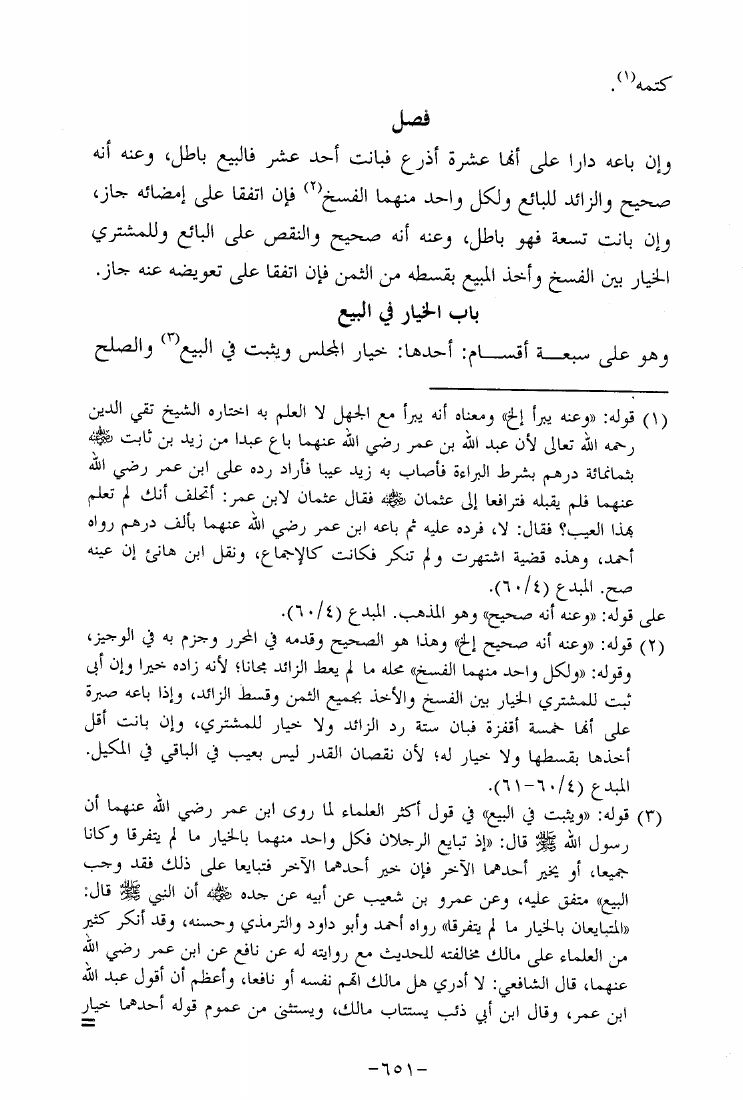 كتمه(١).
فصل
وإن باعه دارا على أنها عشرة أذرع فبانت أحد عشر فالبيع باطل، وعنه أنه
صحيح والزائد للبائع ولكل واحد منهما الفسخ(٢) فإن اتفقا على إمضائه جاز،
وإن بانت تسعة فهو باطل، وعنه أنه صحيح والنقص على البائع وللمشتري
الخيار بين الفسخ وأخذ المبيع بقسطه من الثمن فإن اتفقا على تعويضه عنه جاز.
باب الخيار في البيع
وهو على سبعــة أقســام: أحدها: خيار المجلس ويثبت في البيع(٣) والصلح
(١) قوله: «وعنه يبرأ إلخ» ومعناه أنه يبرأ مع الجهل لا العلم به اختاره الشيخ تقي الدين
رحمه الله تعالى لأن عبد الله بن عمر رضي الله عنهما باع عبدا من زيد بن ثابت ﷺ
بثمانمائة درهم بشرط البراءة فأصاب به زيد عيبا فأراد رده على ابن عمر رضي الله
عنهما فلم يقبله فترافعا إلى عثمان ﷺ فقال عثمان لابن عمر: أتحلف أنك لم تعلم
بهذا العيب؟ فقال: لا، فرده عليه ثم باعه ابن عمر رضي الله عنهما بألف درهم رواه
أحمد، وهذه قضية اشتهرت ولم تنكر فكانت كالإجماع، ونقل ابن هانئ إن عينه
صح. المبدع (٦٠/٤).
على قوله: «وعنه أنه صحيح» وهو المذهب. المبدع (٦٠/٤).
(٢) قوله: «وعنه أنه صحيح إلخ» وهذا هو الصحيح وقدمه في المحرر وجزم به في الوجيز،
وقوله: «ولكل واحد منهما الفسخ» محله ما لم يعط الزائد مجانا؛ لأنه زاده خيرا وإن أبى
ثبت للمشتري الخيار بين الفسخ والأخذ بجميع الثمن وقسط الزائد، وإذا باعه صبرة
على أنها خمسة أقفزة فبان ستة رد الزائد ولا خيار للمشتري، وإن بانت أقل
أخذها بقسطها ولا خيار له؛ لأن نقصان القدر ليس بعيب في الباقي في المكيل.
المبدع (٦٠/٤-٦١).
(٣) قوله: «ويثبت في البيع» في قول أكثر العلماء لما روى ابن عمر رضي الله عنهما أن
رسول الله ﷺ قال: «إذ تبايع الرجلان فكل واحد منهما بالخيار ما لم يتفرقا وكانا
جميعا، أو يخير أحدهما الآخر فإن خير أحدهما الآخر فتبايعا على ذلك فقد وجب
البيع» متفق عليه، وعن عمرو بن شعيب عن أبيه عن جده ﷺ أن النبي ﷺ قال:
«المتبايعان بالخيار ما لم يتفرقا» رواه أحمد وأبو داود والترمذي وحسنه، وقد أنكر كثير
من العلماء على مالك مخالفته للحديث مع روايته له عن نافع عن ابن عمر رضي الله
عنهما، قال الشافعي: لا أدري هل مالك اتهم نفسه أو نافعا، وأعظم أن أقول عبد الله
ابن عمر، وقال ابن أبي ذئب يستتاب مالك، ويستثنى من عموم قوله أحدهما خيار
=
-٦٥١-